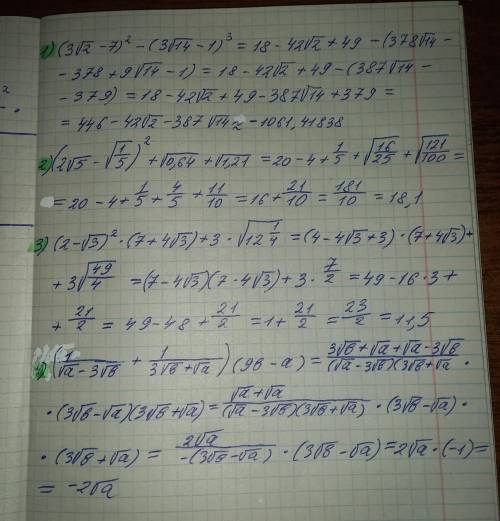 1) (3√2 - 7)² - (3√14 - 1)³ = 18 - 42√2 + 49 - (378√14 -
- 378 + 9√14 - 1) = 18 - 42√2 + 49 - (387√14 -
- 379) = 18 - 42√2 + 49 - 387√14 + 379 =
= 446 - 42√2 - 387√14 ≈ -1061,41838
2) (2√5 - √(1/5))² + √0,64 + √1,21 = 20 - 4 + 1/5 + √(16/25) + √(121/100) =
= 20 - 4 + 1/5 + 4/5 + 11/10 = 16 + 21/10 = 181/10 = 18,1
3) (2-√3)² · (7+4√3) + 3 · √(12 1/4) = (4 - 4√3 + 3) · (7+4√3) +
+ 3√(49/4) = (7 - 4√3)(7 · 4√3) + 3 · 7/2 = 49 - 16 · 3 +
+ 21/2 = 49 - 48 + 21/2 = 1 + 21/2 = 23/2 = 11,5
(1/(√a - 3√в) + 1/(3√в + √a)) (9в - a) = (3√в + √a + √a - 3√в)/((√a - 3√в)(3√в + √a) ·
· (3√в - √a)(3√в + √a) = (√a + √a)/((√a - 3√в)(3√в + √a)) · (3√в - √a) ·
· (3√в + √a) = 2√a/(-(3√в - √a)) · (3√в - √a) = 2√a · (-1) =
= -2√a